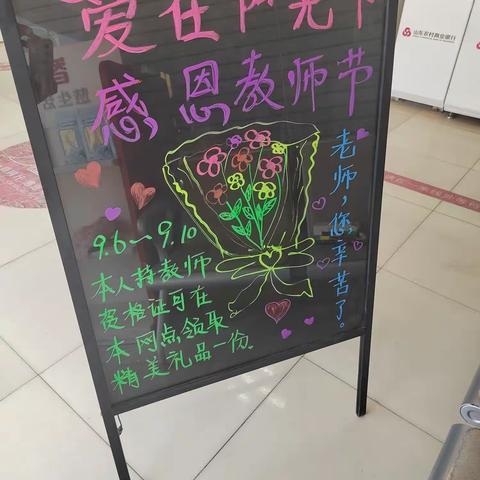 爱在阳光下
感恩教师节
老师，您辛苦了。
9.6一9.10
本人持教师
资格证可在
本网点领取
精美礼品一份。
山东农村商业银行